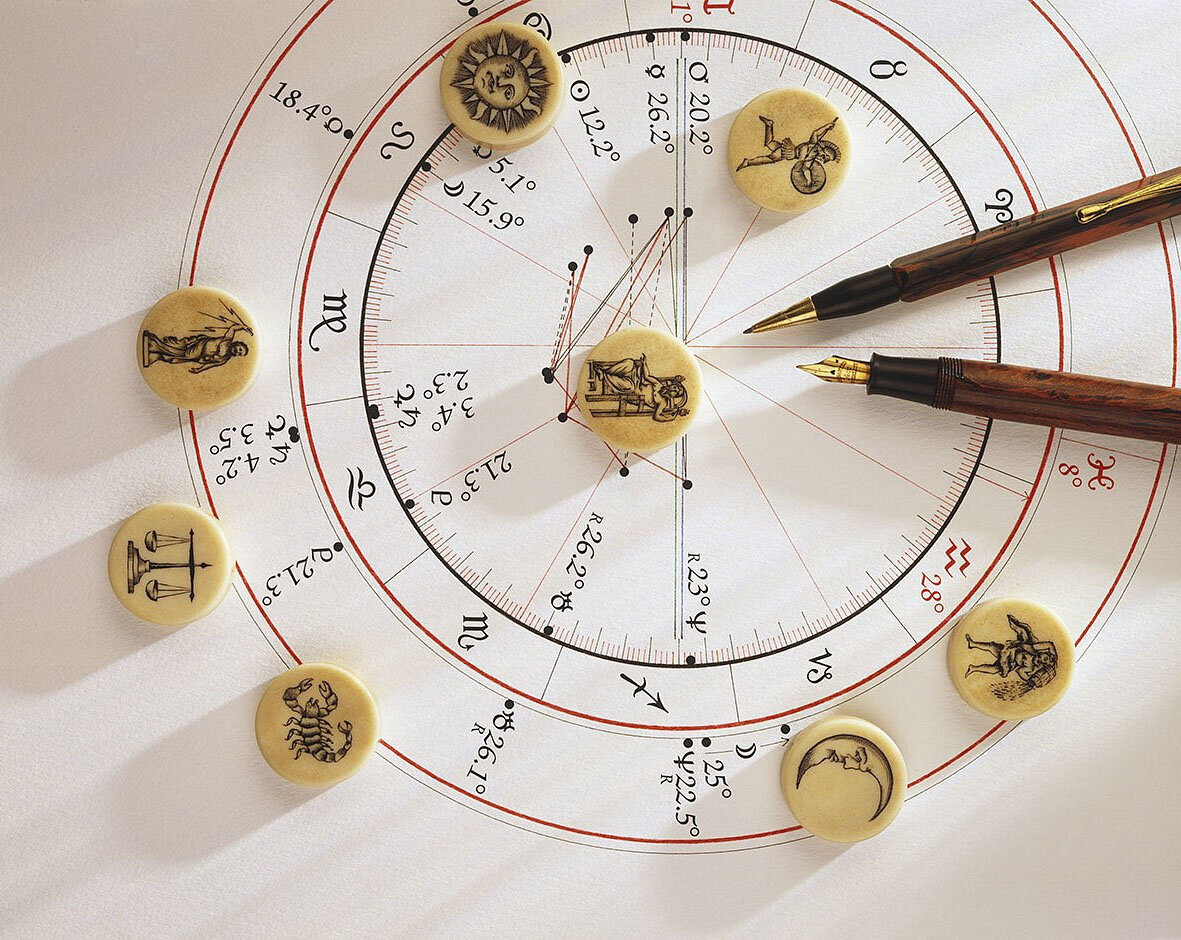 ♊ 1°
♉
♈
♋
☿ 26.2°
♂ 20.2°
☉ 12.2°
18.4° ☊
♌
5.1°
☽ 15.9°
♍
♃ ♄
3.4°
2.3°
♃ ♄
3.5°
4.2°
♎
♇ 21.3°
♇ 21.3°
♏
R 26.2° ♅
R 23° ♆
♐
♑
♒ 28°
♓ 8°
♅ 26.1°
R
☽
25°
♆ 22.5°
R